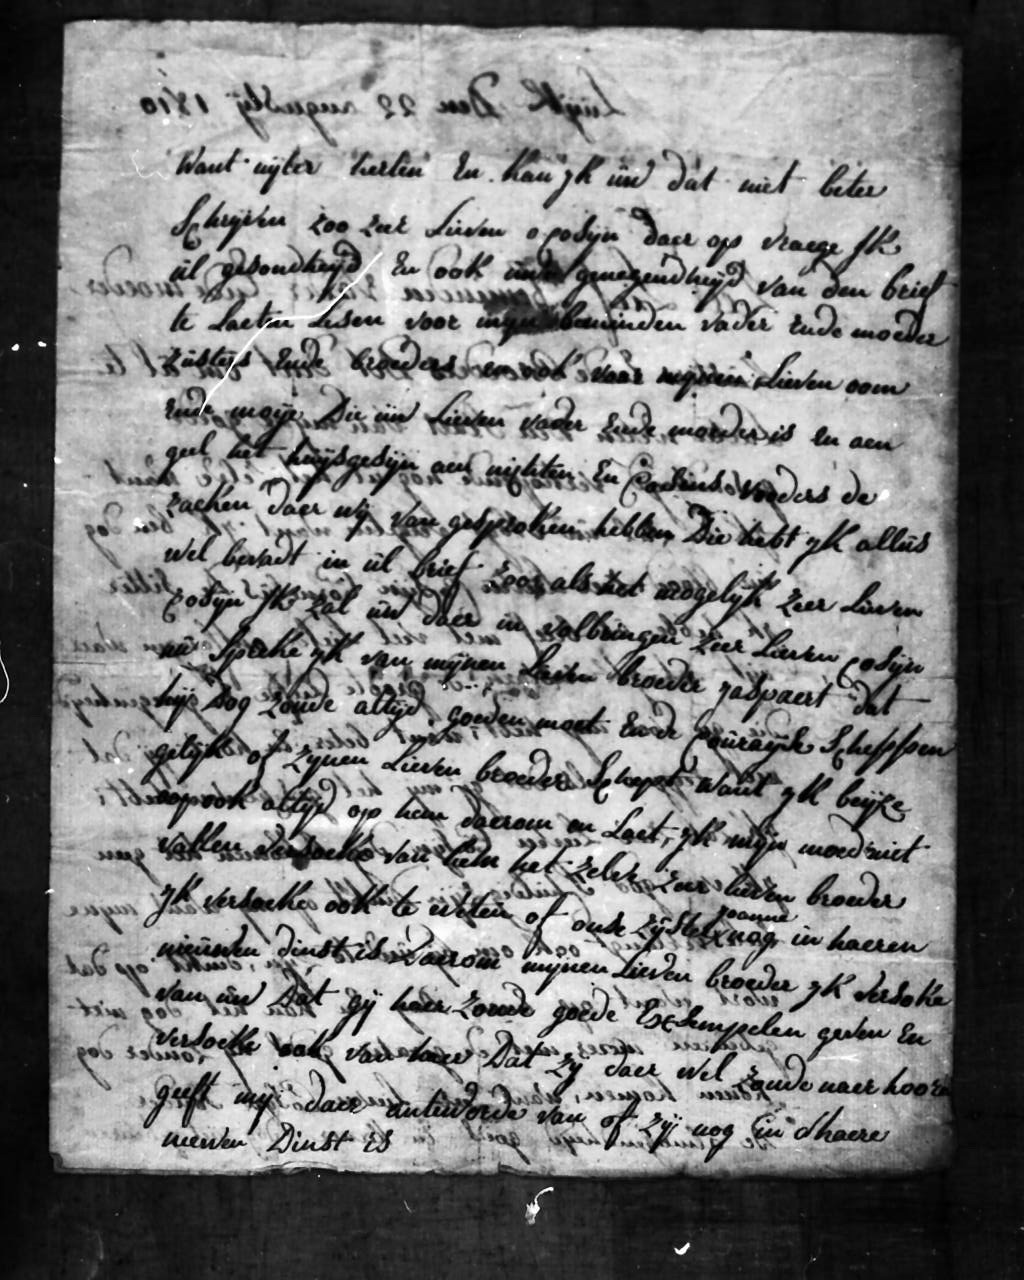 Want uyter herten En kan yk üw dat niet beter
Schryven zoo zeer Lieven cosyn daer op vraege yk
ül gesondheyd En ook üwe genegendheyd van den brief
te Laeten Lesen voor myn beminden vader Ende moeder
züsters Ende broeders en ook voor mynen Lieven oom
Ende moye Die üw Lieven vader Ende moeder is En aen
geel het huysgesyn aen nighten En Cosins vooders de
zaeken daer wy van gesproken hebben Die hebt yk alles
wel bevadt in ül brief zoo als het mogelyk zeer Lieven
Cosyn yk zal üw daer in volbringen zeer Lieven cosyn
nü Spreke yk van mynen Lieven broeder jaspaert dat
hy Dog zoude altyd goeden moet Ende Couragie Scheppen
gelyk of zynen Lieven broeder Schept want yk
ook altyd op hem daerom en Laet yk myn moed niet
vallen versoeke van hem het zelve zeer lieven broeder
yk versoeke ook te weten of onse züster joanna nog in haeren
nieuwen dinst is Daerom mynen Lieven broeder yk versoke
van üw Dat gy haer zoude goede Exsempelen geven En
versoeke ook van haer Dat zy daer wel zoude naer hooren
geeft my daer antworde van of zy nog in haere
niewen Dinst Es